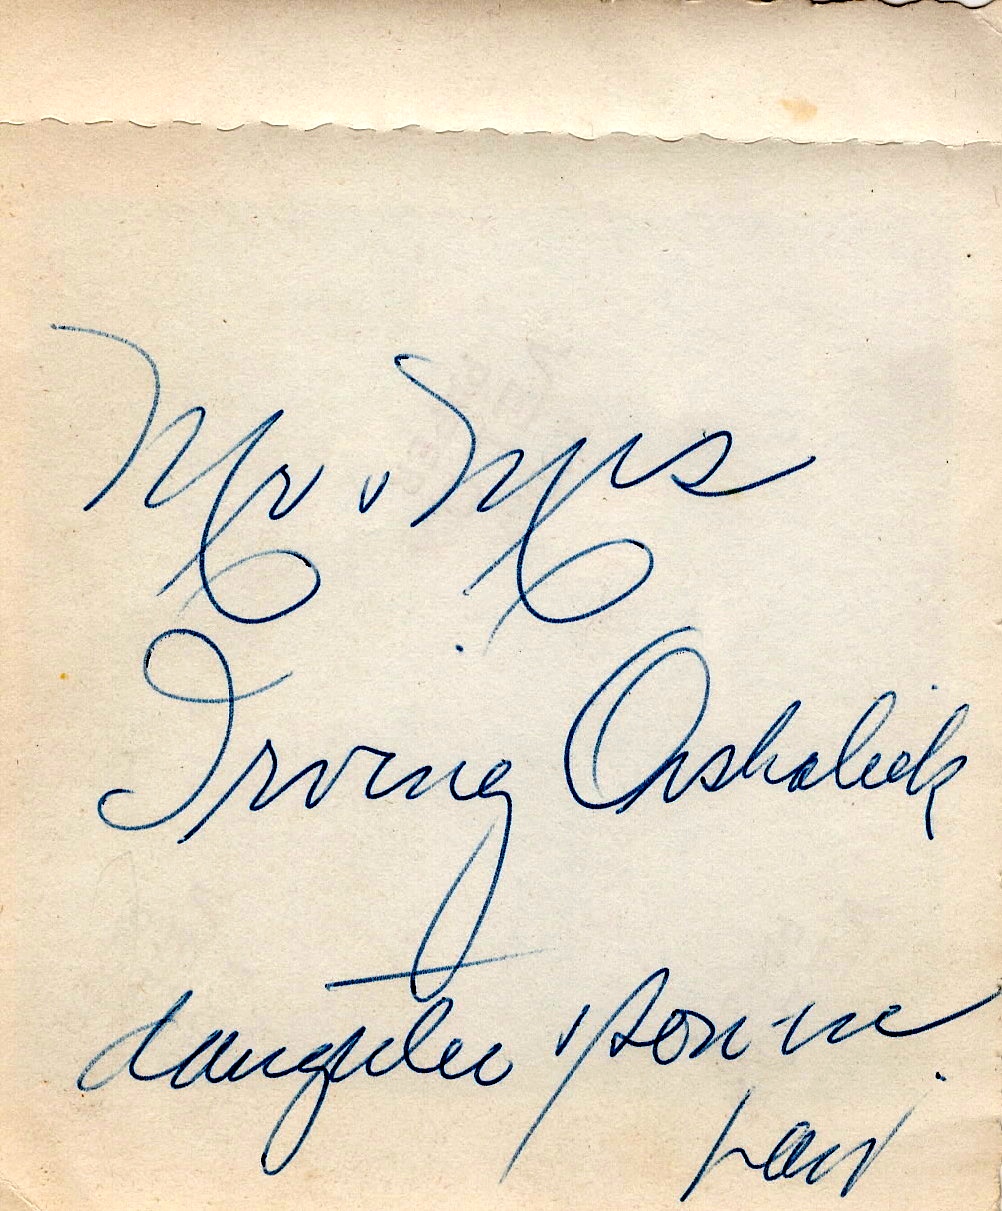 Mr & Mrs
Irving
daughter & son-in
law